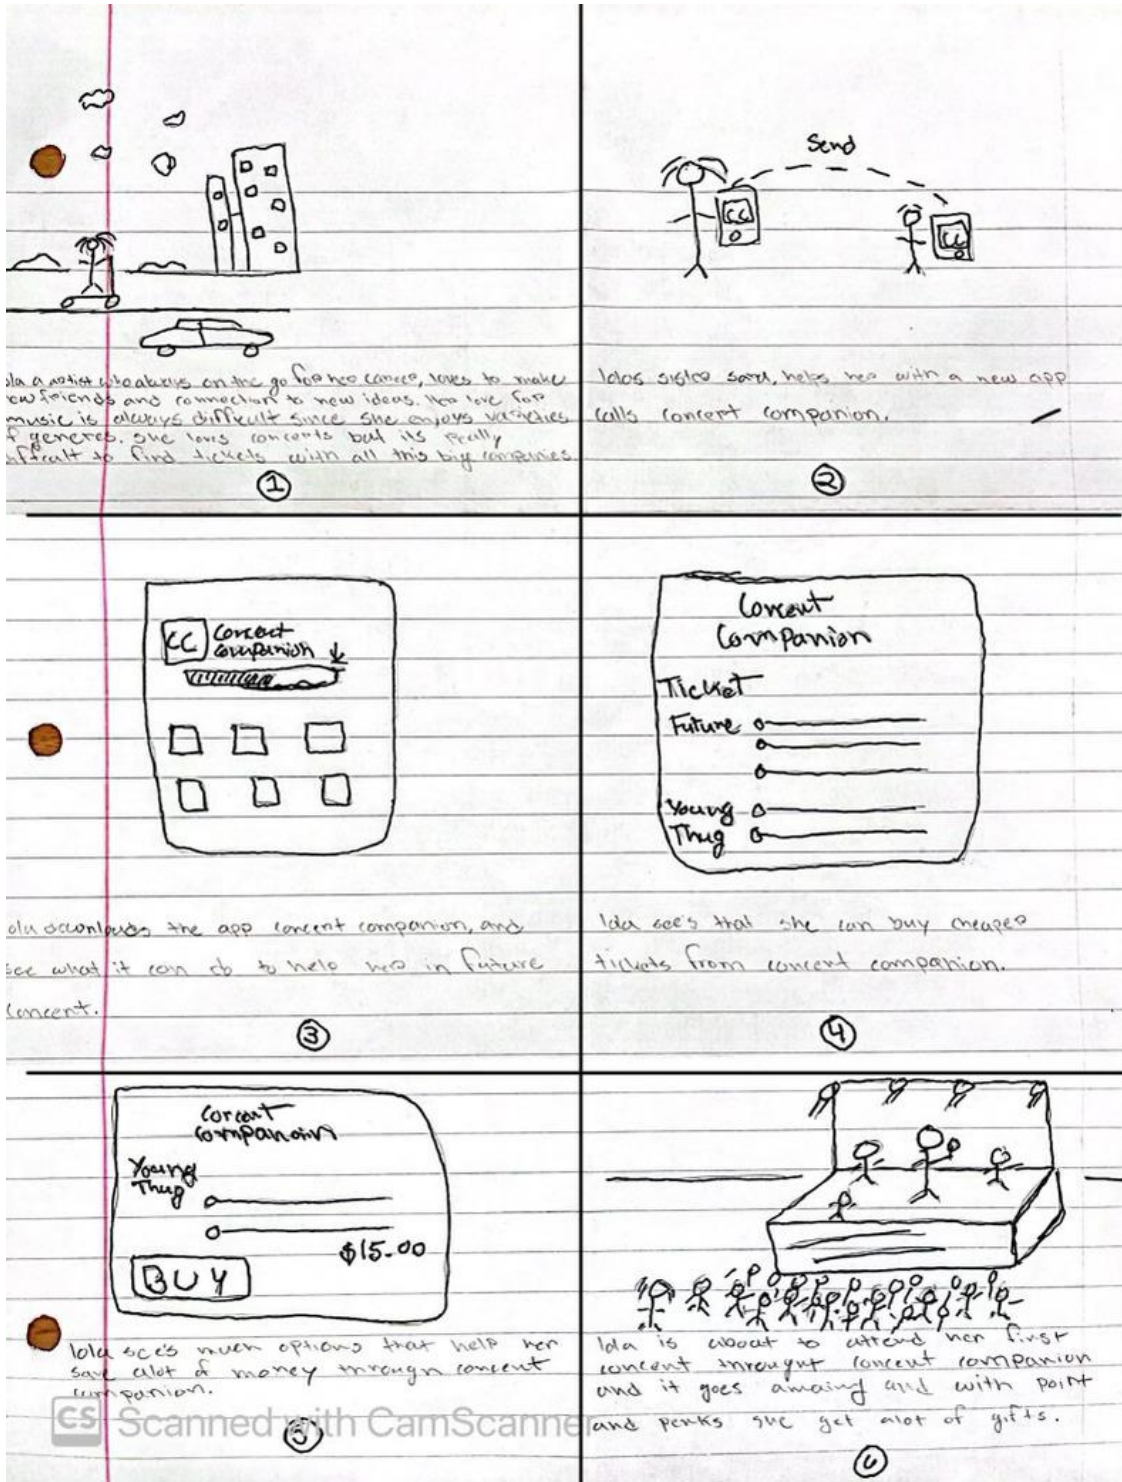 Send
CC
CC
ola a artist who always on the go for her career, loves to make
ow friends and connection to new ideas. Her love for
music is always difficult since she enjoys varieties
f generes. she loves concerts but its really
fficult to find tickets with all this big companies.
①
lolas sister sara, helps her with a new app
calls concert companion.
②
CC Concert
Companion
Concert
Companion
Ticket
Future
Young
Thug
ola downloads the app concert companion, and
see what it can do to help her in future
concert.
③
lola see's that she can buy cheaper
tickets from concert companion.
④
Concert
Companoin
Young
Thug
$15.00
BUY
lola see's much options that help her
save alot of money through concert
companion.
⑤
lola is about to attend her first
concert throught concert companion
and it goes amaing and with point
and perks she get alot of gifts.
⑥
CS Scanned with CamScanner